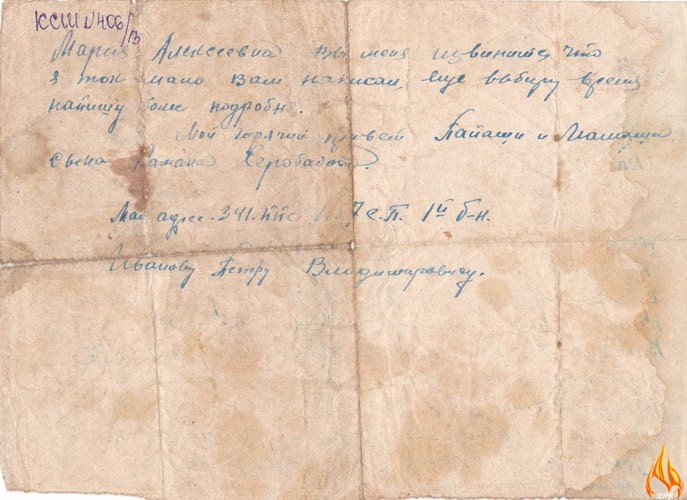 КСШ №406/13
Мария Алексеевна Вы меня извините, что
я так мало Вам написал, еще выберу время
напишу более подробно.
Мой горячий привет и
сына
Мой адрес. 341. ппс 57 с.п. 1й б-н.
Иванову Петру Владимировичу.